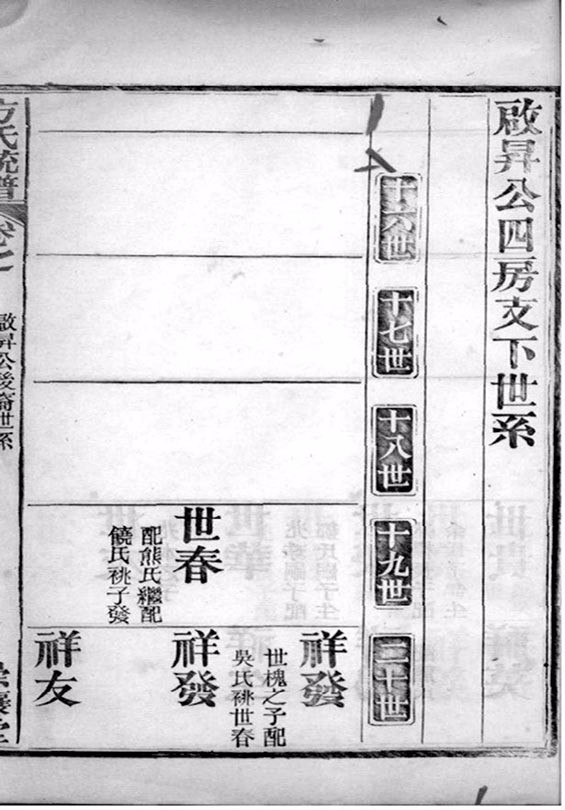 啟昇公四房支下世系
十六世
十七世
十八世
十九世
二十世
世春
配熊氏繼配
饒氏祧子發
祥發
世槐之子配
吳氏祧世春
祥發
祥友
方氏統譜
卷之
啟昇公後裔世系